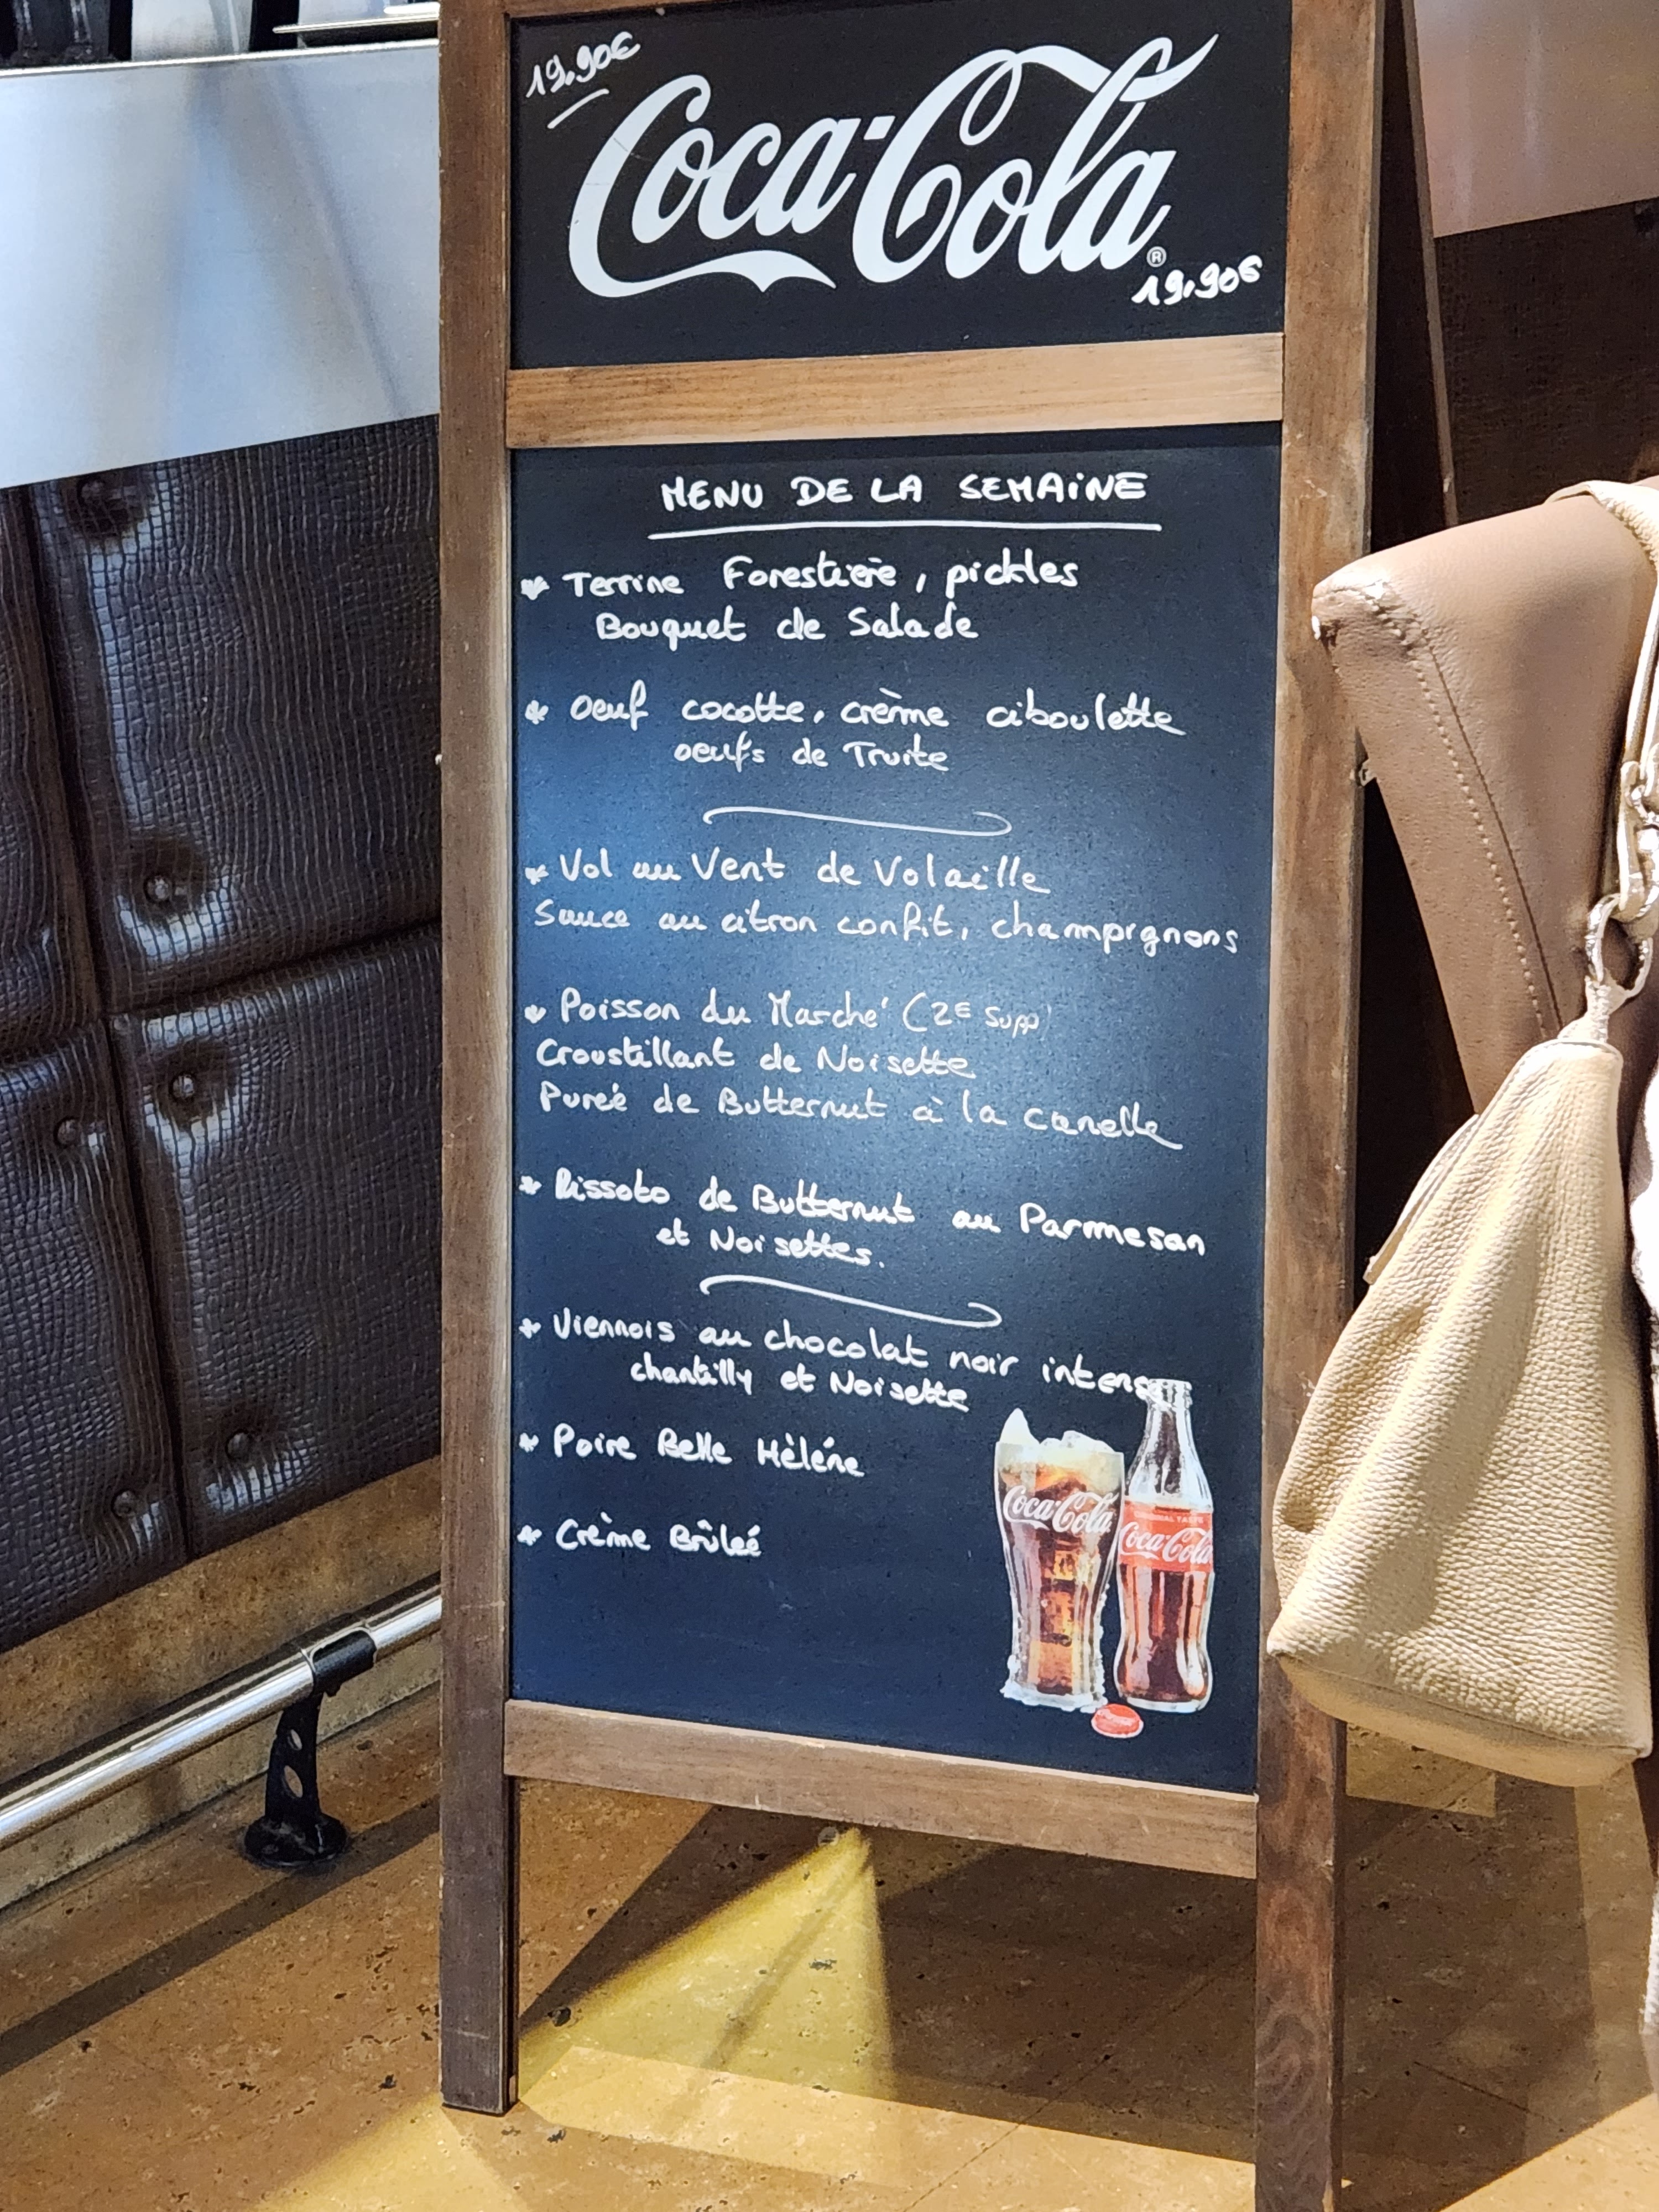 19.90€
Coca-Cola®
19.90€
MENU DE LA SEMAINE
* Terrine Forestière, pickles
Bouquet de Salade
* Oeuf cocotte, crème ciboulette
oeufs de Truite
* Vol au Vent de Volaille
Sauce au citron confit, champignons
* Poisson du Marché (2€ Supp)
Croustillant de Noisette
Purée de Butternut à la canelle
* Rissoto de Butternut au Parmesan
et Noisettes.
* Viennois au chocolat noir intense
chantilly et Noisette
* Poire Belle Hèléne
* Crème Brûleé
Coca-Cola
ORIGINAL TASTE
Coca-Cola